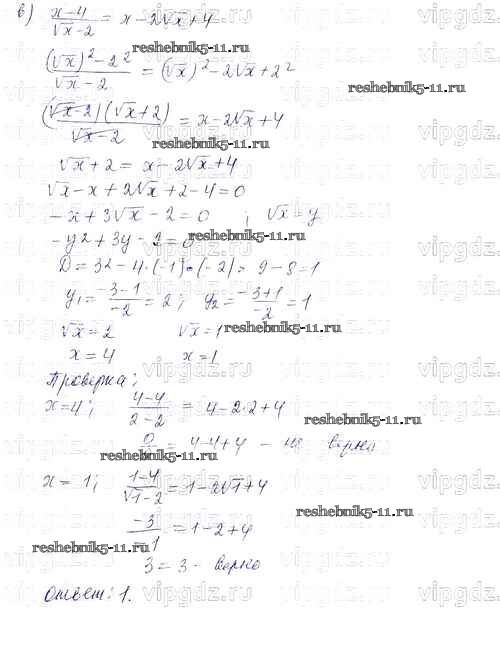 в) (x-4)/(√x-2) = x-2√x+4
((√x)²-2²)/(√x-2) = (√x)²-2√x+2²
reshebnik5-11.ru
reshebnik5-11.ru
((√x-2)(√x+2))/(√x-2) = x-2√x+4
reshebnik5-11.ru
√x+2 = x-2√x+4
√x-x+2√x+2-4=0
-x+3√x-2=0 ; √x=y
-y²+3y-2=0
reshebnik5-11.ru
D=3²-4·(-1)·(-2)= 9-8=1
y₁= (-3-1)/(-2) = 2; y₂= (-3+1)/(-2) = 1
√x=2 √x=1
reshebnik5-11.ru
x=4 x=1
Проверка:
x=4; (4-4)/(2-2) = 4-2·2+4
reshebnik5-11.ru
= 4-4+4 - не верно
reshebnik5-11.ru
x=1; (1-4)/(√1-2) = 1-2√1+4
reshebnik5-11.ru
-3/-1 = 1-2+4
reshebnik5-11.ru
3=3 - верно
Ответ: 1.
vipgdz.ru